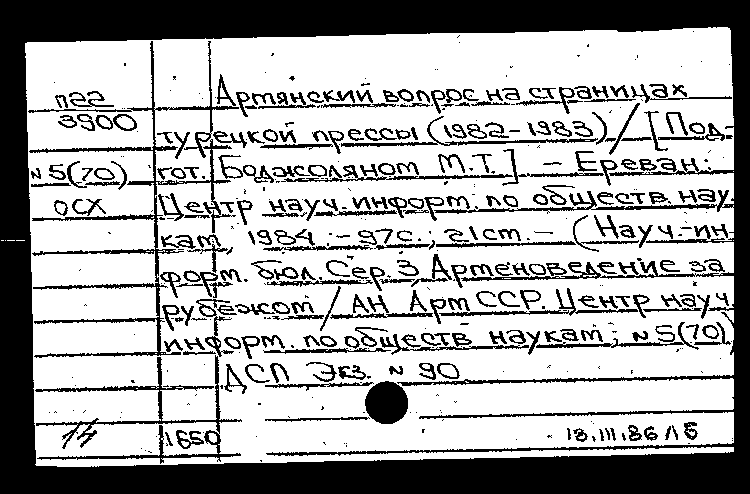 п22 Армянский вопрос на страницах
3900 турецкой прессы (1982-1983) / [Под-
№5(70) гот. Боджоляном М.Т.] - Ереван:
ОСХ Центр науч. информ. по обществ. нау-
кам, 1984. - 97с.; 21см. - (Науч.-ин-
форм. бюл. Сер. 3, Арменоведение за
рубежом / АН Арм ССР. Центр науч.
информ. по обществ наукам; №5(70)
ДСП Экз. № 90
14 1650 13.III.86